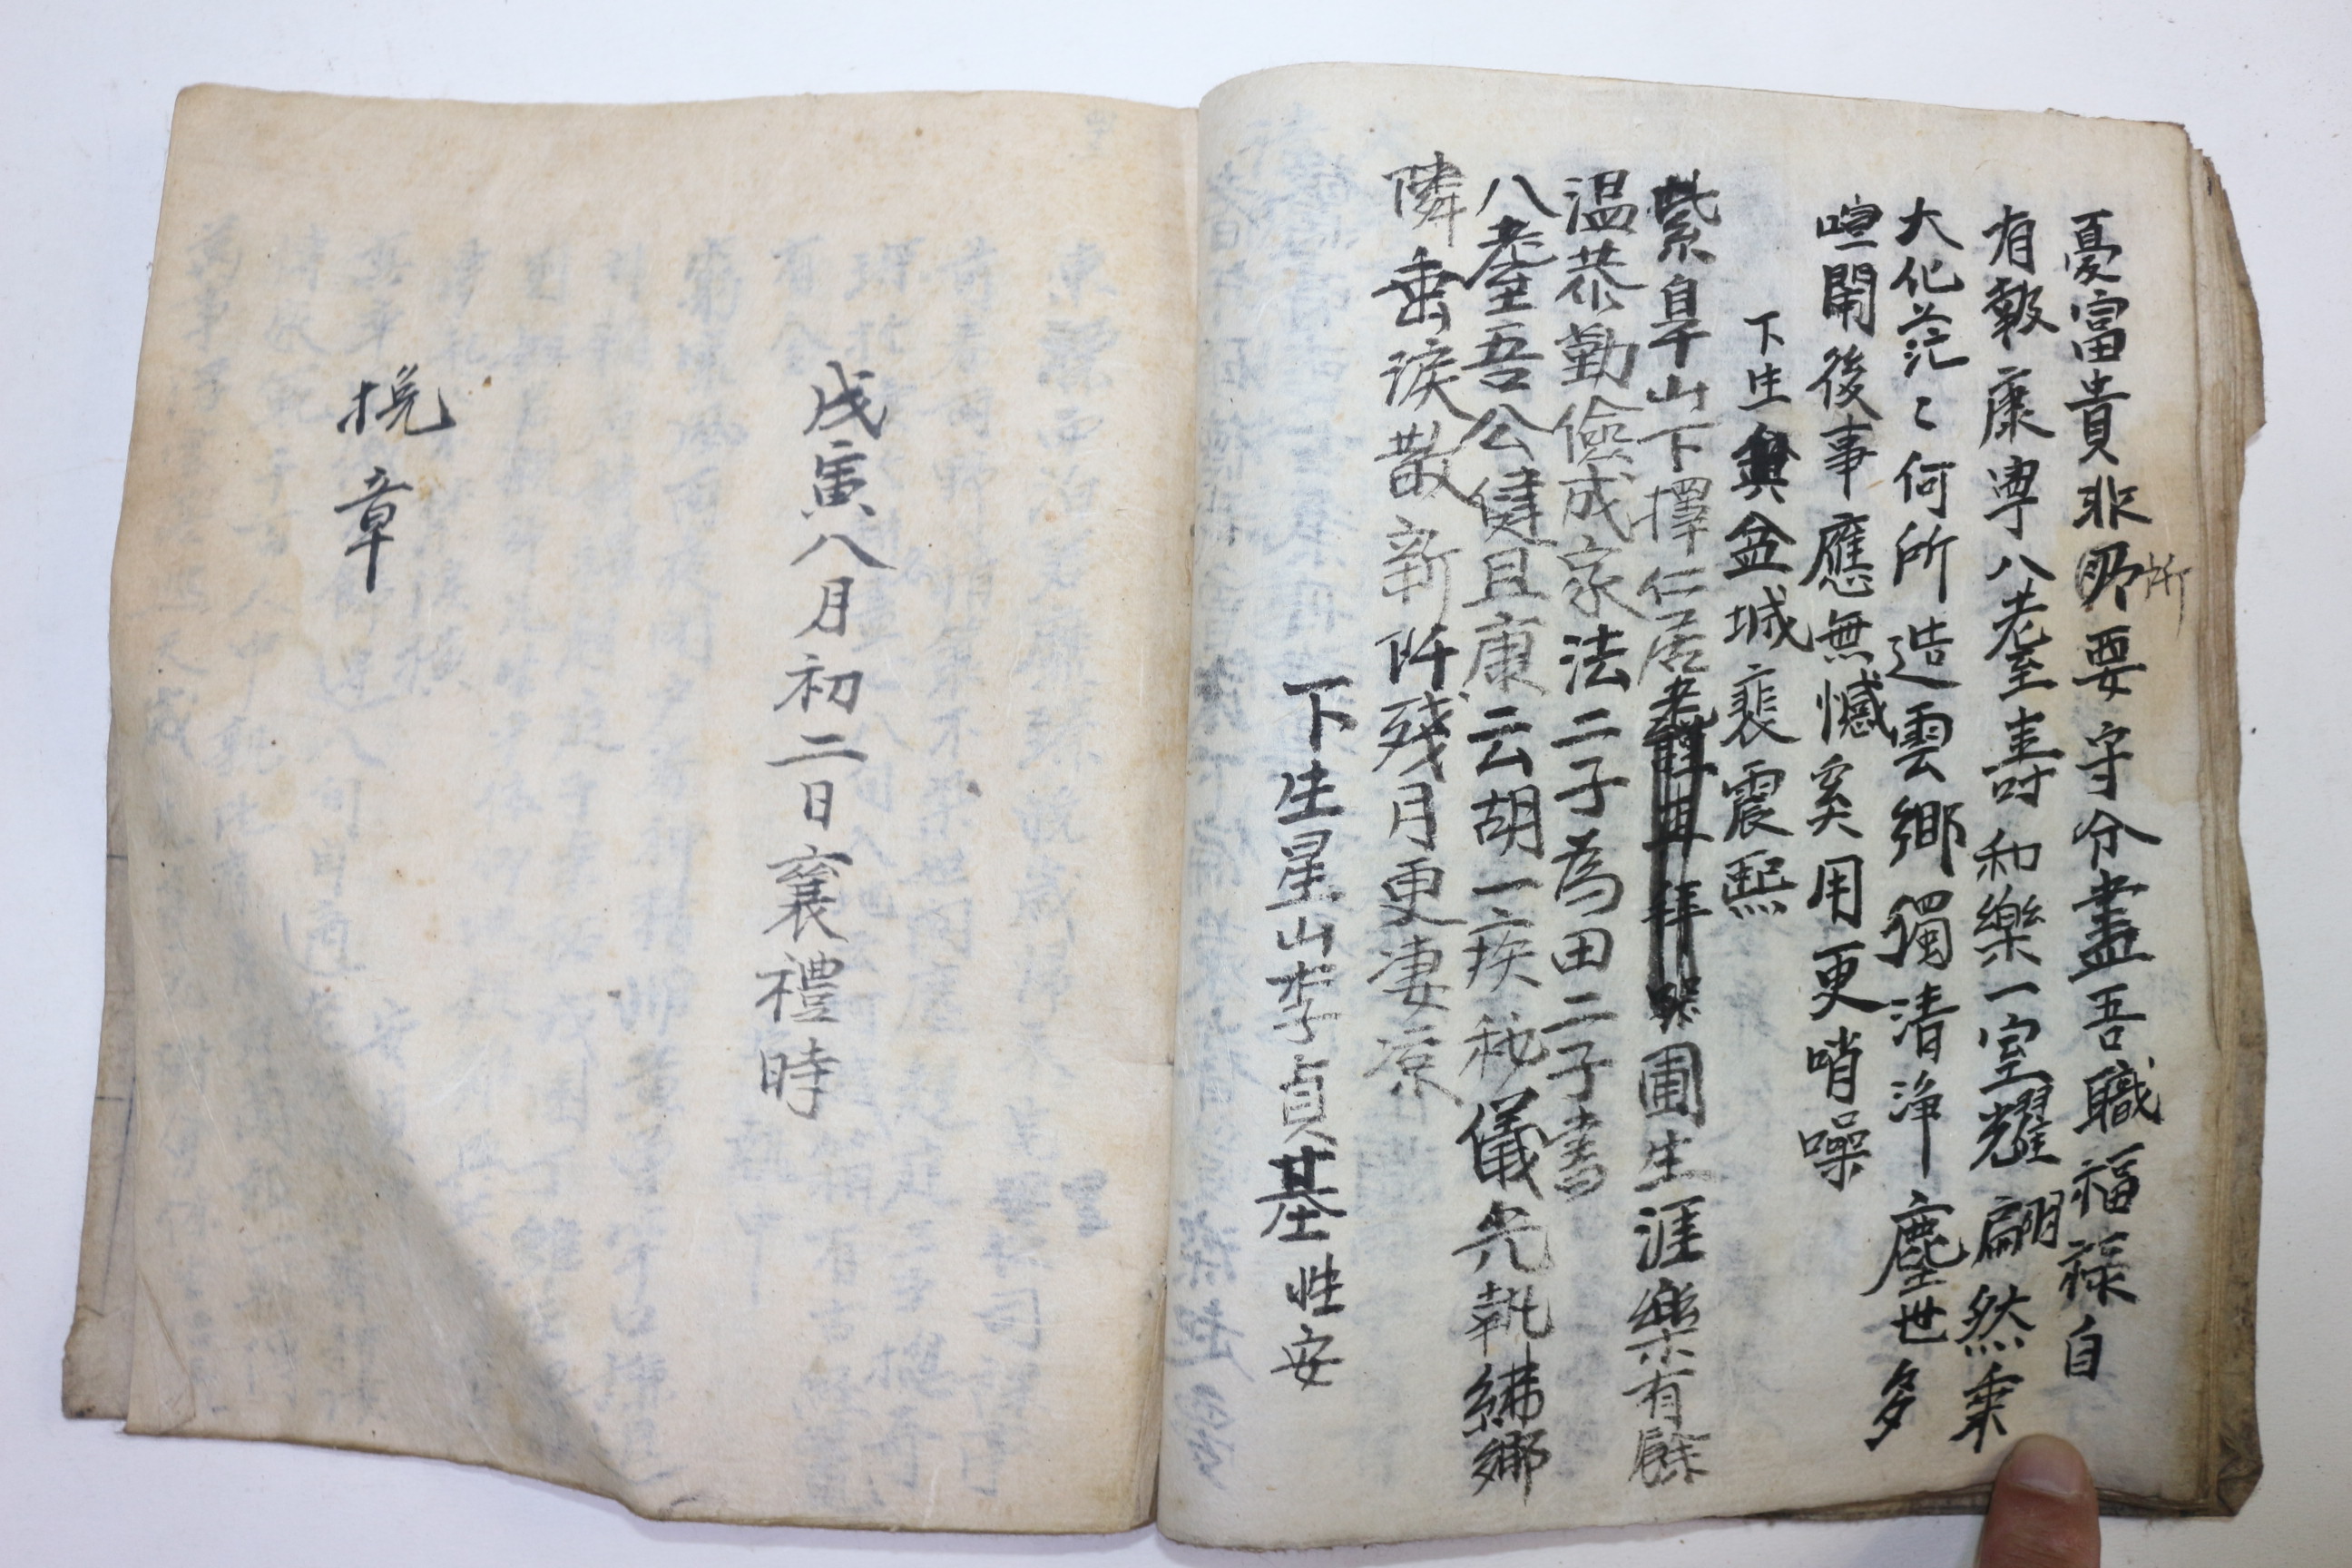 憂富貴非所要守分盡吾職福祿自
所
有報康寧八耋壽和樂一室耀翩然乗
大化茫〻何所造雲鄉獨清淨塵世多
喧鬧後事應無憾奚用更啃噪
下生盆城裵震熙
紫皐山下擇仁居圃生涯樂有餘
温恭勤儉成家法二子為田二子書
八耋吾公健且康云胡一疾秘儀光執紼鄉
隣垂淚散新阡殘月更凄凉
下生星山李貞基性安
戊寅八月初二日襄禮時
挽章